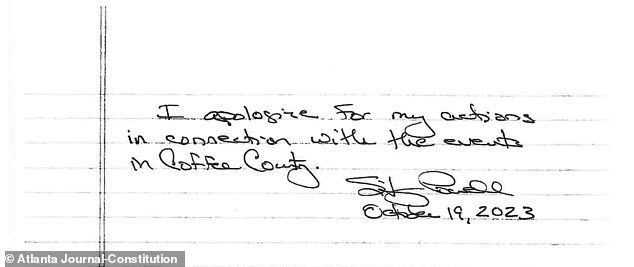 I apologize for my actions
in connection with the events
in Coffee County.
Sidney Powell
October 19, 2023
© Atlanta Journal-Constitution